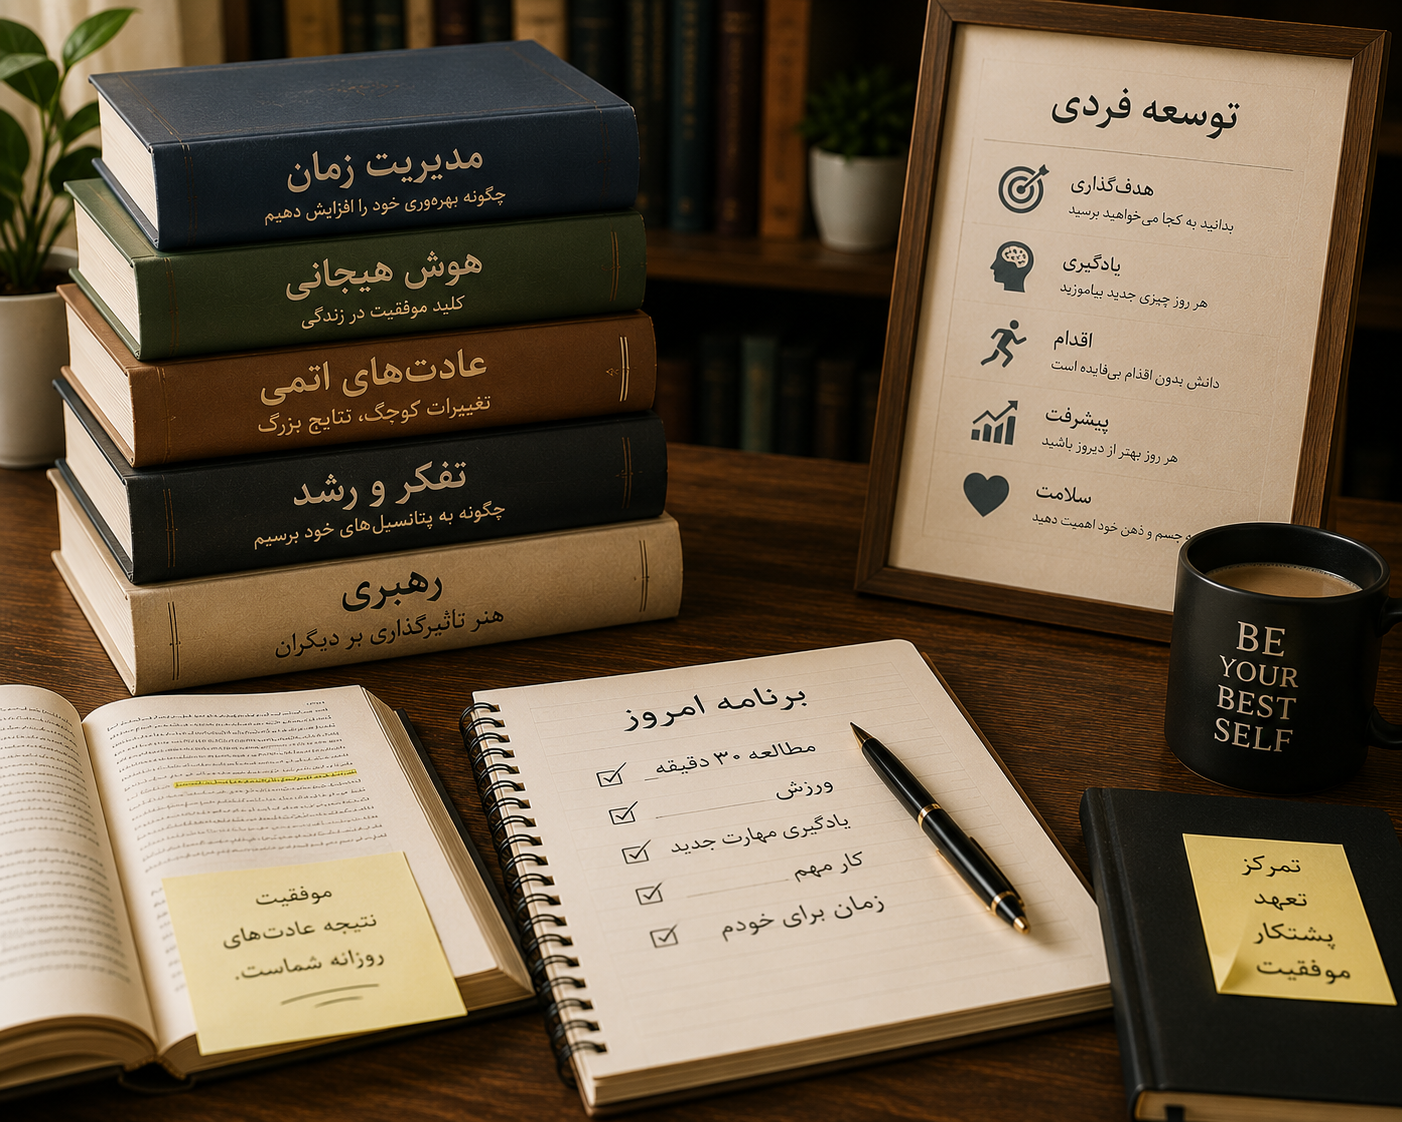 مدیریت زمان
چگونه بهره‌وری خود را افزایش دهیم
هوش هیجانی
کلید موفقیت در زندگی
عادت‌های اتمی
تغییرات کوچگ، نتایج بزرگ
تفکر و رشد
چگونه به پتانسیل‌های خود برسیم
رهبری
هنر تأثیرگذاری بر دیگران
توسعه فردی
هدف‌گذاری
بدانید به کجا می‌خواهید برسید
یادگیری
هر روز چیزی جدید بیاموزید
اقدام
دانش بدون اقدام بی‌فایده است
پیشرفت
هر روز بهتر از دیروز باشید
سلامت
به جسم و ذهن خود اهمیت دهید
BE
YOUR
BEST
SELF
برنامه امروز
مطالعه ۳۰ دقیقه
ورزش
یادگیری مهارت جدید
کار مهم
زمان برای خودم
موفقیت
نتیجه عادت‌های
روزانه شماست.
تمرکز
تعهد
پشتکار
موفقیت